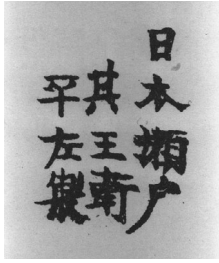 日本瀬戸
其王軒
平左製